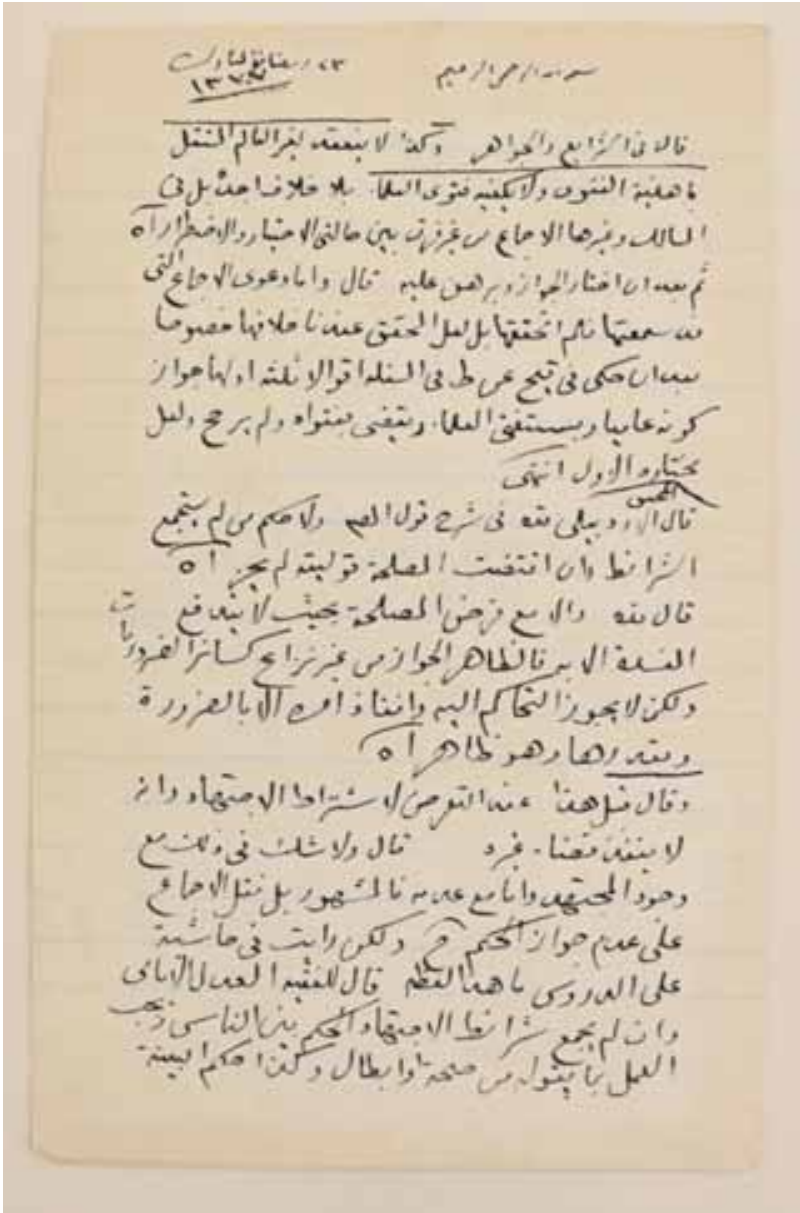 بسم الله الرحمن الرحيم
٢٣ رمضان المبارك
١٣٧٢
قال فى الشرايع والجواهر وكذا لا ينعقد لغير العالم المستقل
باهلية الفتوى ولا يكفيه فتوى العلماء بلا خلاف اجده بل فى
المسالك وغيرها الاجماع من غير فرق بين حالتى الاختيار والاضطرار اه
ثم بعد ان اختار الجواز وبرهن عليه قال واما دعوى الاجماع التى
قد سمعتها فلم اتحققها بل لعل المحقق عندنا خلافها خصوصا
بعد ان حكى فى قيح عن ط فى المسئلة اقوالا ثلثه اولها جواز
كونه عاميا ويستفتى العلماء ويقضى بفتواهم ولم يرجح ولعل
مختاره الاول انتهى
قال الاردبيلى قده فى شرح قول المصه ولا حكم من لم يستجمع
الشرائط وان اقتضت المصلحة توليته لم يجز اه
قال قده والا مع فرض المصلحة بحيث لا يندفع
المفسدة الا به فالظاهر الجواز من غير نزاع كسائر الضروريات
ولكن لا يجوز التحاكم اليه وانفاذ امره الا بالضرورة
وبقدرها وهو ظاهر اه
وقال قبل هذا عند التعرض لاشتراط الاجتهاد وانه
لا ينفذ قضاء غيره قال ولا شك فى ذلك مع
وجود المجتهد واما مع عدمه فالمشهور بل نقل الاجماع
على عدم جواز الحكم ح ولكن رايت فى حاشية
على الدروس ما هذا لفظه قال للفقيه العدل الامامى
وان لم يجمع شرائط الاجتهاد الحكم بين الناس ويجب
العمل بما يقوله من صحة او ابطال وكذا حكم البينة